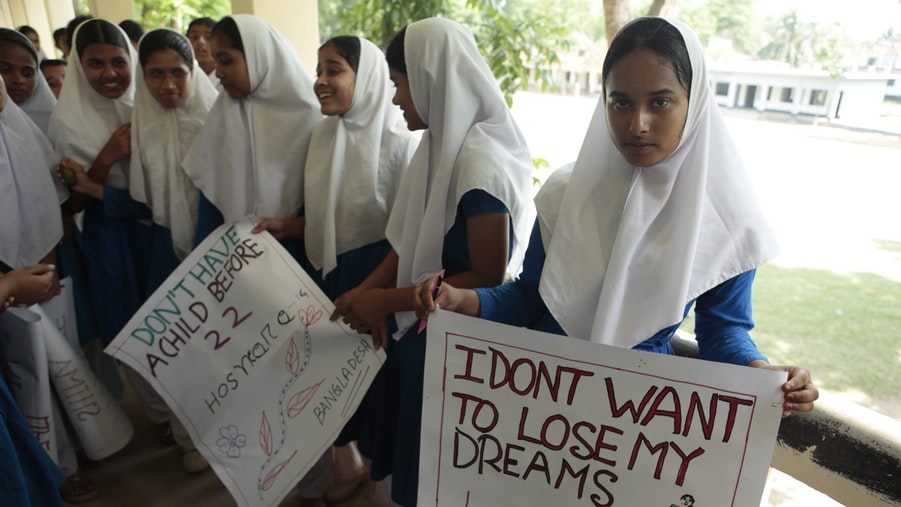 DON'T HAVE
A CHILD BEFORE
22
BANGLADESH
I DONT WANT
TO LOSE MY
DREAMS